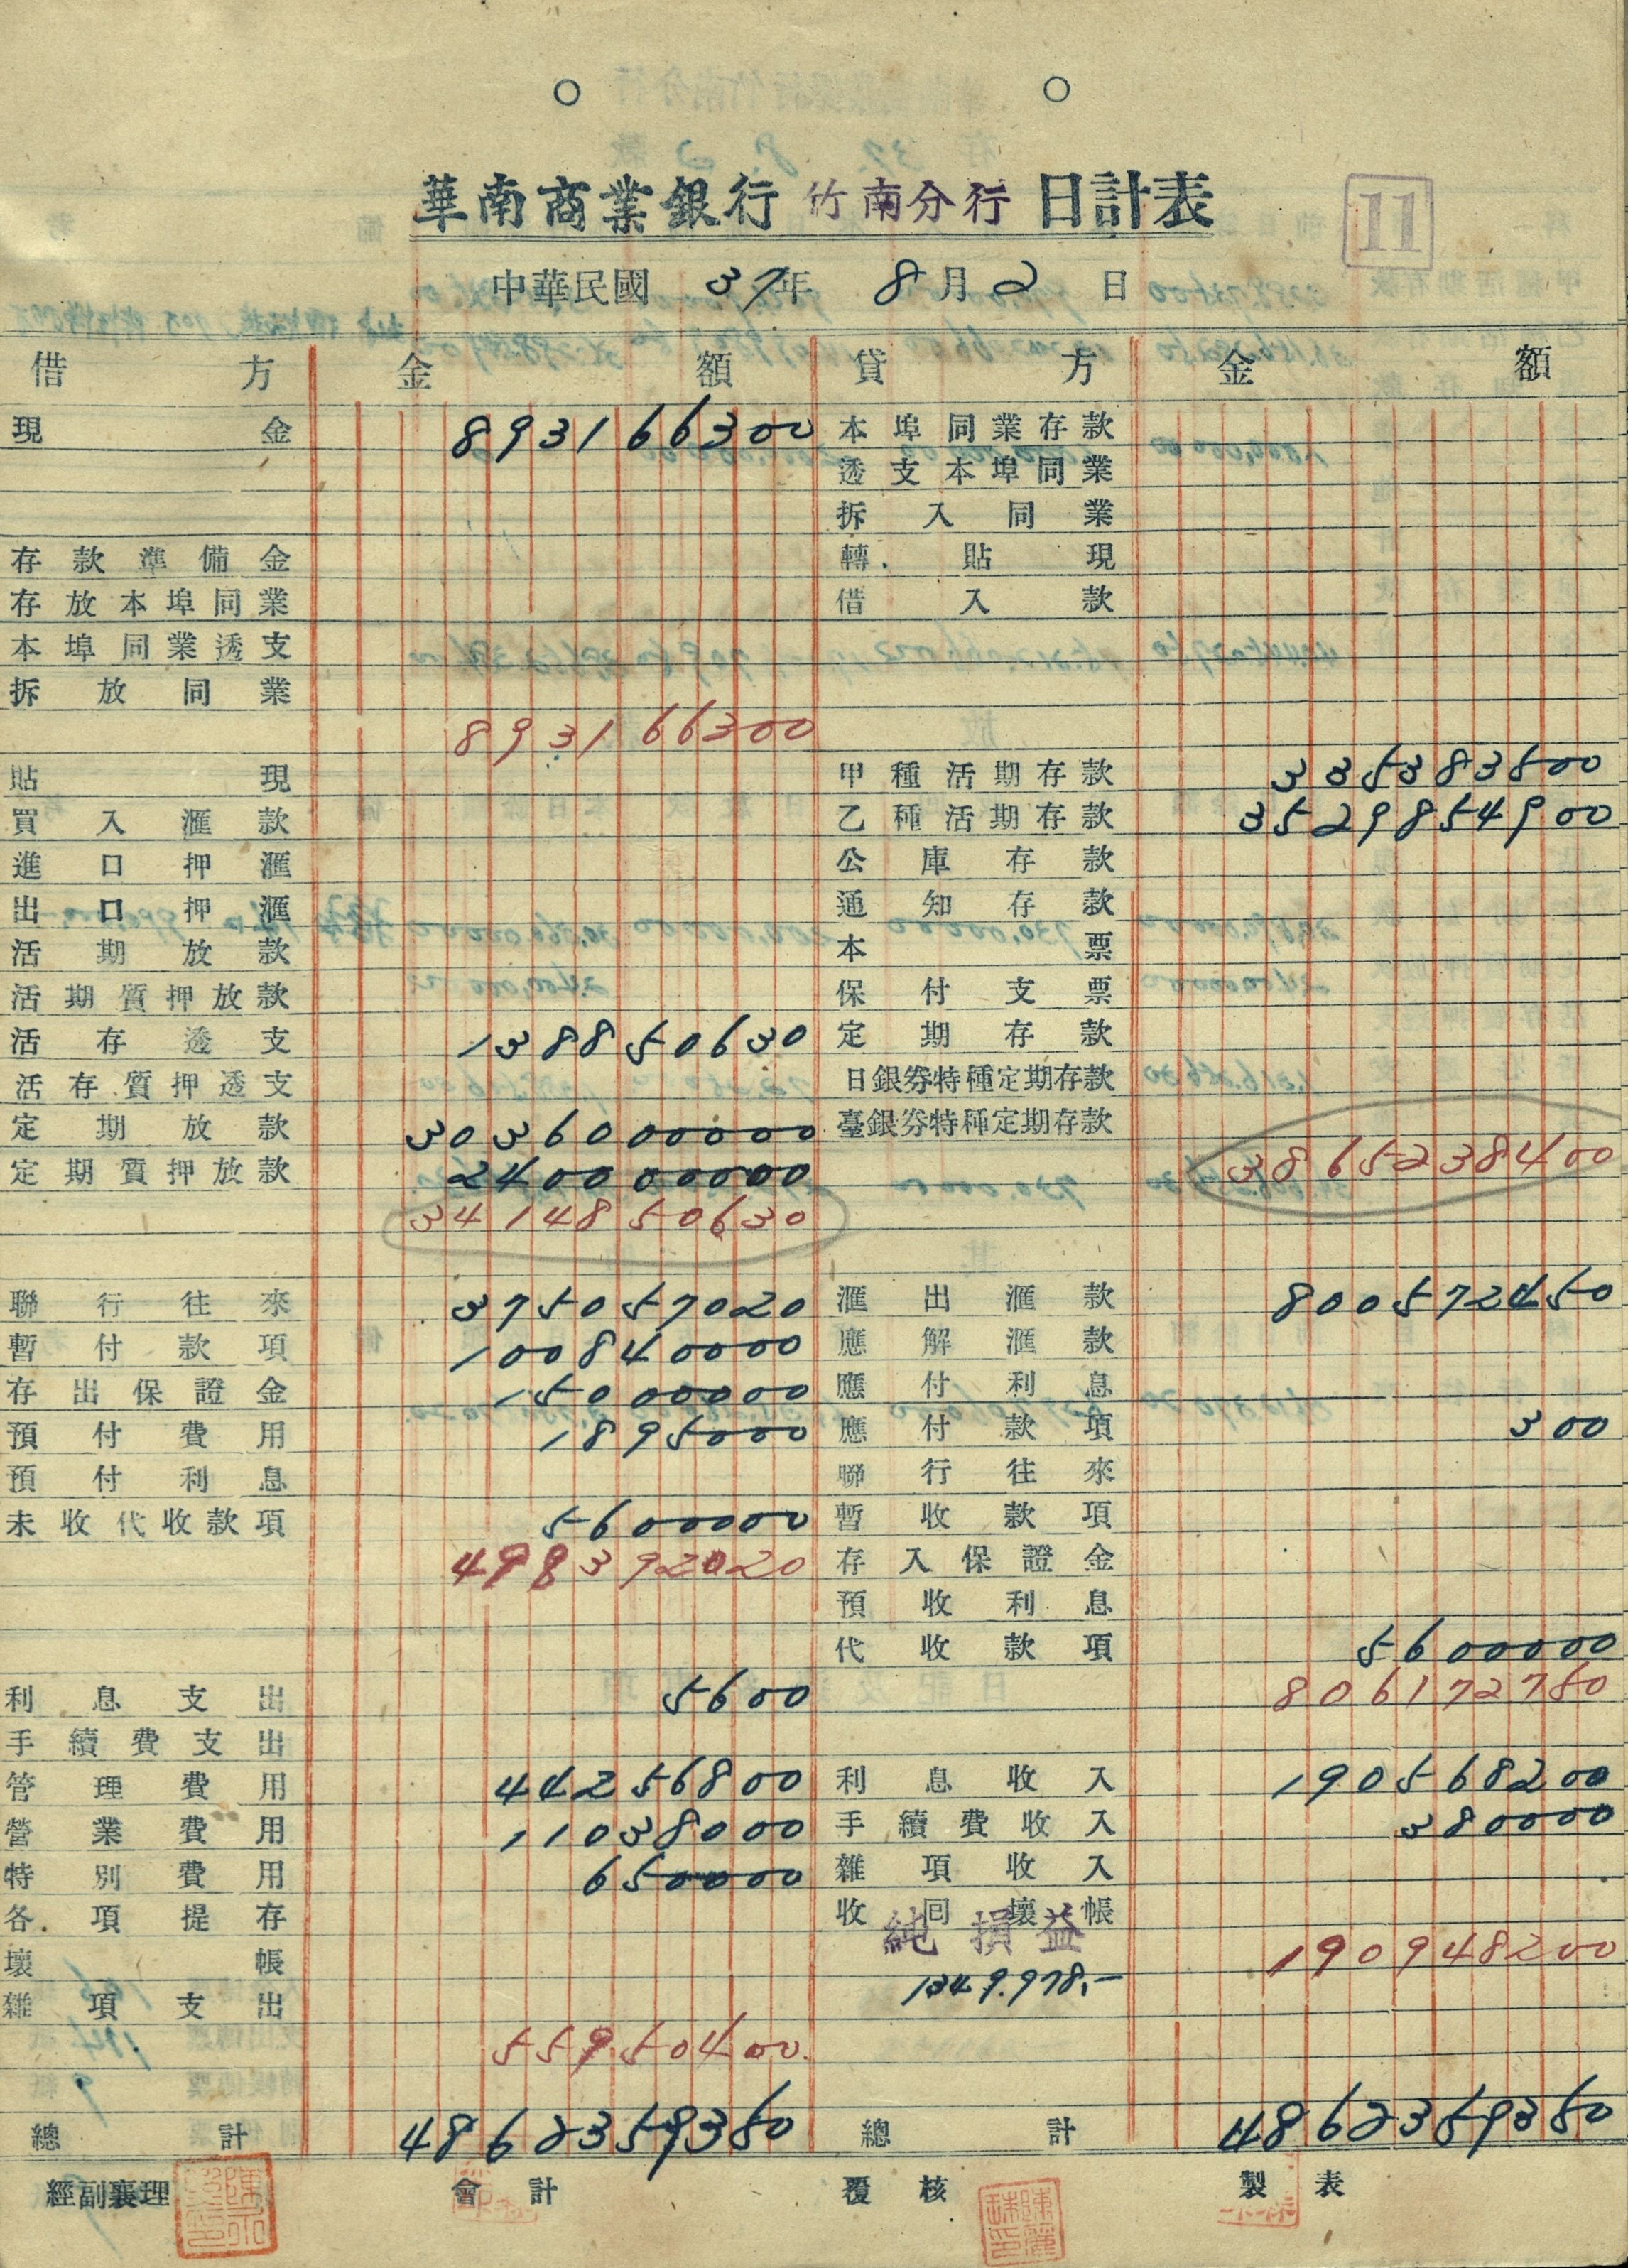 華南商業銀行 竹南分行 日計表
11
中華民國 37年 8月2日
借方 金額 貸方 金額
現金 893166300 本埠同業存款
透支本埠同業
拆入同業
存款準備金 轉貼現
存放本埠同業 借入款
本埠同業透支
拆放同業
893166300
貼現 甲種活期存款 335383500
買入滙款 乙種活期存款 3529854900
進口押滙 公庫存款
出口押滙 通知存款
活期放款 本票
活期質押放款 保付支票
活存透支 138850630 定期存款
活存質押透支 日銀券特種定期存款
定期放款 3036000000 臺銀券特種定期存款
定期質押放款 240000000 3865238400
3414850630
聯行往來 375057020 滙出滙款 800572450
暫付款項 100840000 應解滙款
存出保證金 15000000 應付利息
預付費用 1895000 應付款項 300
預付利息 聯行往來
未收代收款項 5600000 暫收款項
498392020 存入保證金
預收利息
代收款項 5600000
利息支出 5600 806172750
手續費支出
管理費用 44256800 利息收入 190568200
營業費用 11038000 手續費收入 380000
特別費用 650000 雜項收入
各項提存 收回壞帳
純損益
壞帳 190948200
雜項支出 1349.978.-
55950400
總計 4862359350 總計 4862359350
經副襄理 會計 覆核 製表